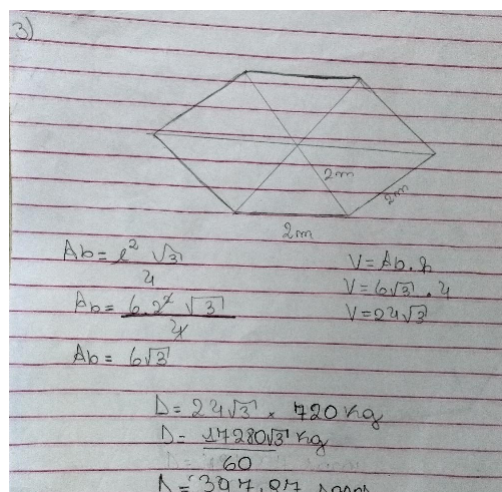 3)
2m
2m
2m
Ab = l² √3
4
Ab = 6.2² √3
4
Ab = 6√3
V = Ab.h
V = 6√3 . 4
V = 24√3
D = 24√3 × 720 Kg
D = 17280√3 Kg
60